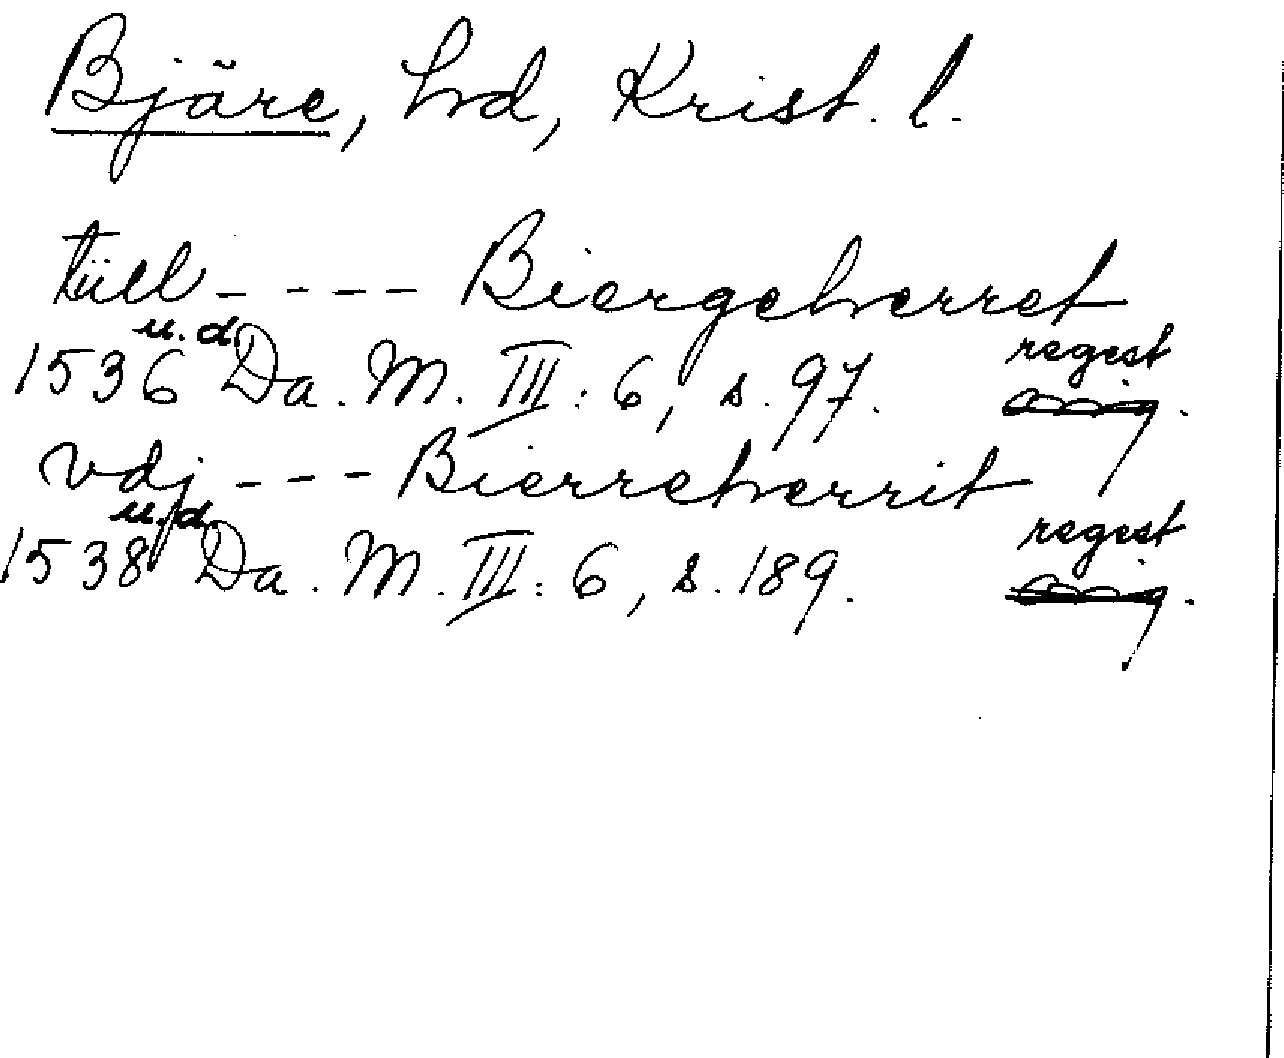 Bjäre, hd, Krist. l.
tüll - - - - Biergeherret
1536 u.d Da. M. III: 6, s. 97. regist
vdj - - - Bierreherrit
1538 u.d Da. M. III: 6, s. 189. regist